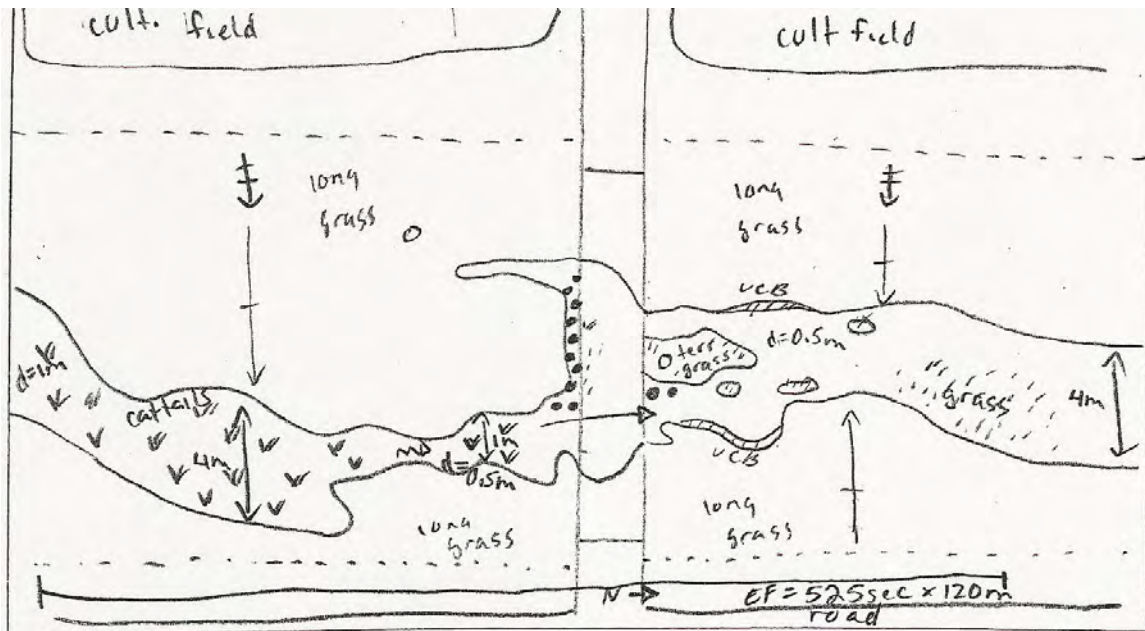 cult. field
cult field
long
grass
long
grass
UCB
d=1m
cattails
4m
1m
d=
0.5m
terr
grass
d=0.5m
grass
4m
UCB
long
grass
long
grass
N
EF=525sec x 120m
road